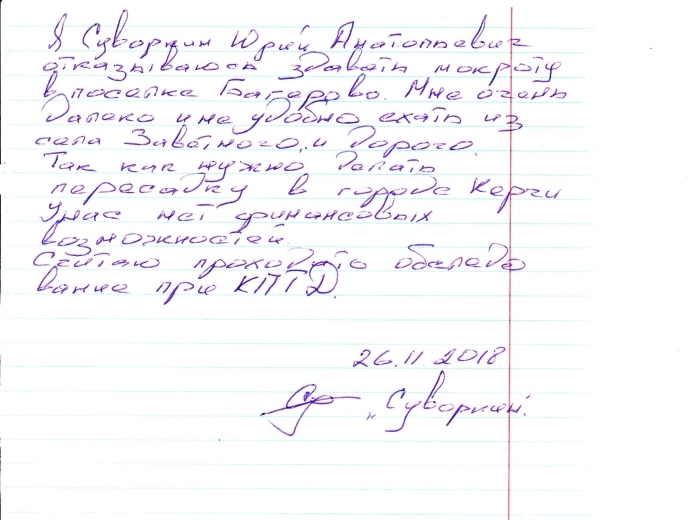 Я Суворкин Юрий Анатольевич
отказываюсь здавать мокроту
в поселке Багерово. Мне очень
далеко и не удобно ехать из
села Заветного, и дорого.
Так как нужно делать
пересадку в городе Керчи
У нас нет финансовых
возможностей.
Считаю проходить обследо
вание при КПТД.
26.11.2018
"Суворкин.